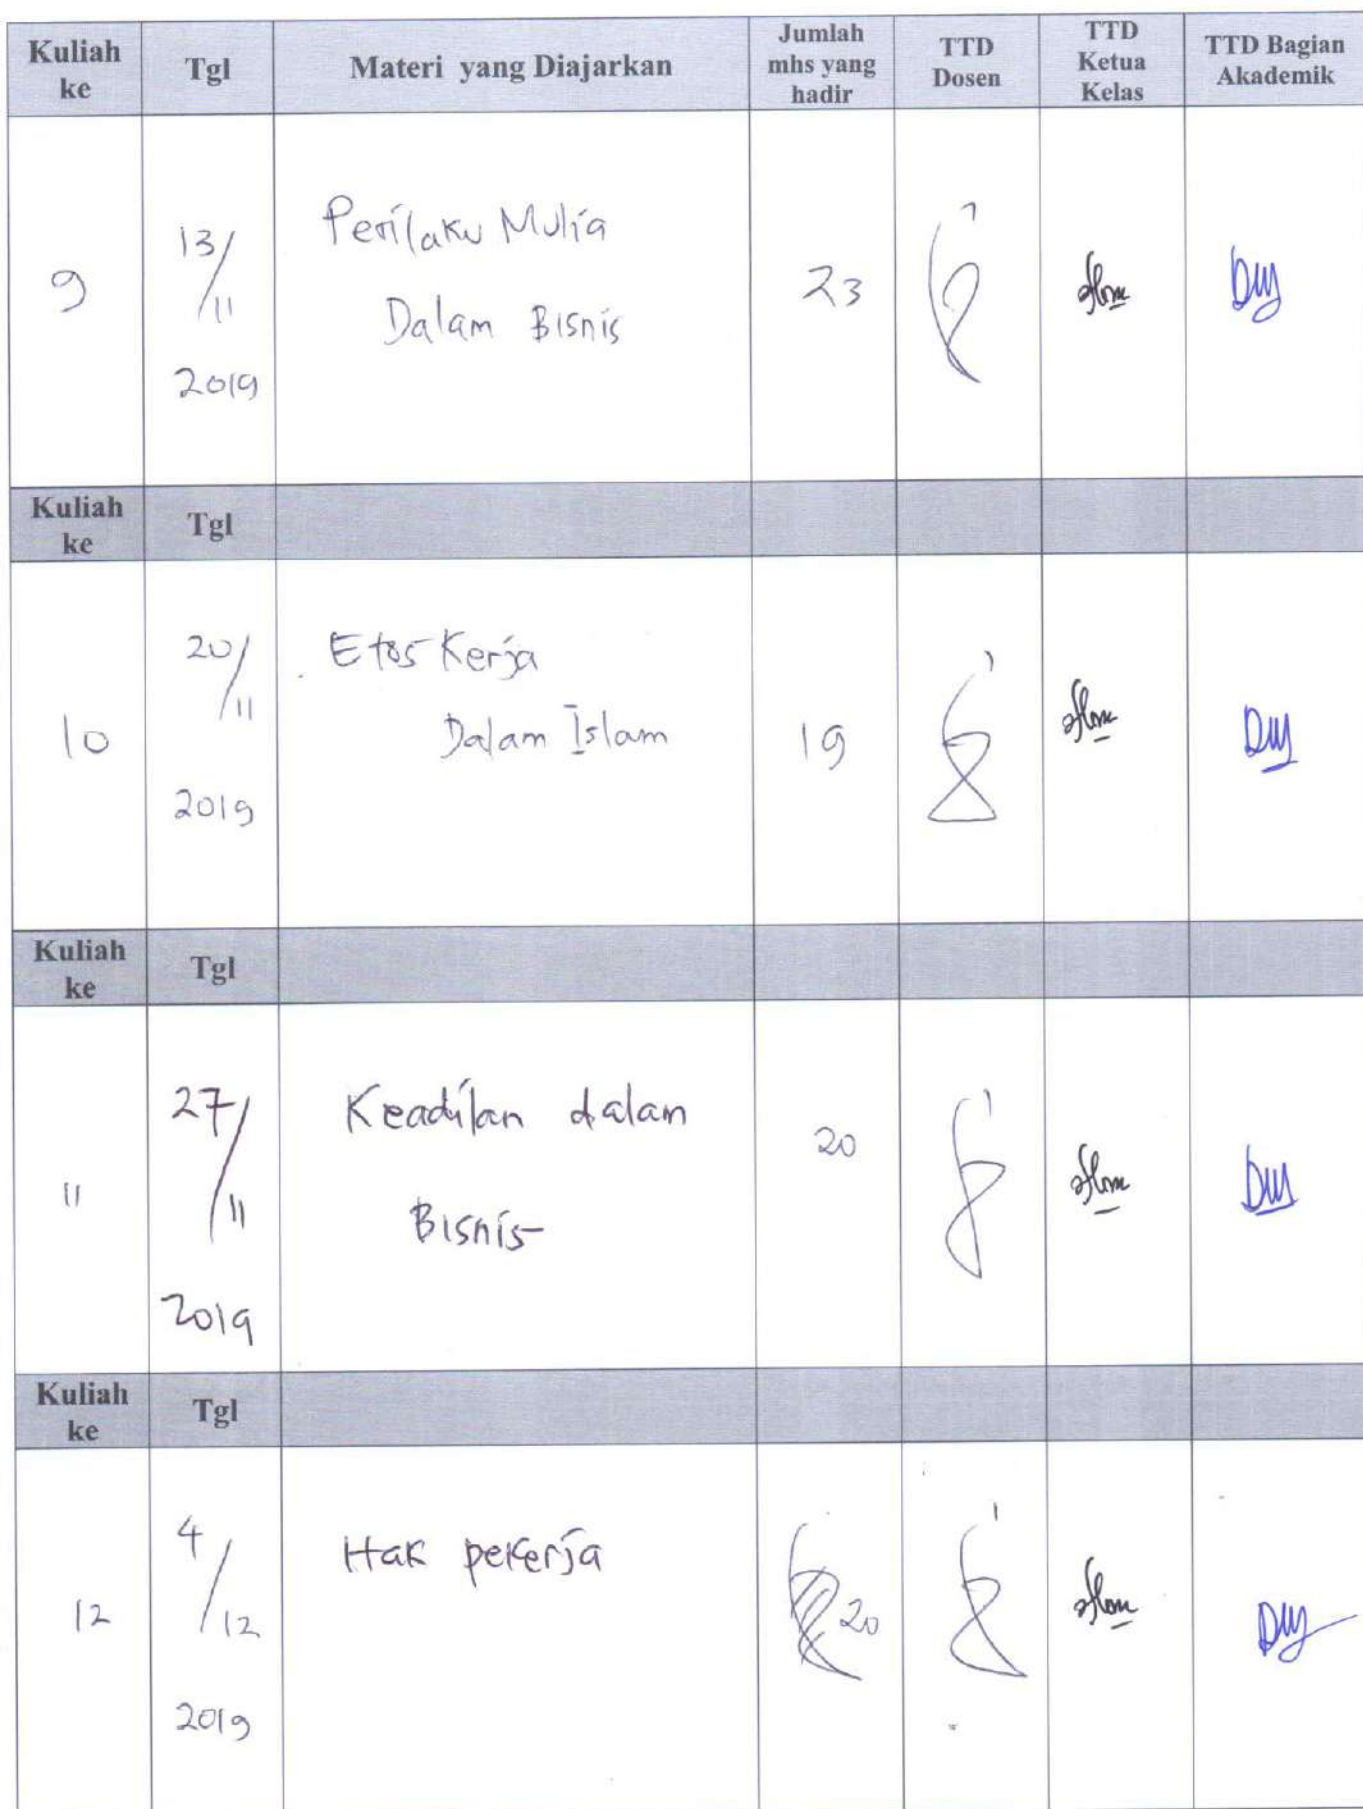 Kuliah ke Tgl Materi yang Diajarkan Jumlah mhs yang hadir TTD Dosen TTD Ketua Kelas TTD Bagian Akademik
9 13/11 2019 Perilaku Mulia 23
Dalam Bisnis
Kuliah ke Tgl
10 20/11 2019 Etos Kerja 19
Dalam Islam
Kuliah ke Tgl
11 27/11 2019 Keadilan dalam 20
Bisnis
Kuliah ke Tgl
12 4/12 2019 Hak pekerja 20